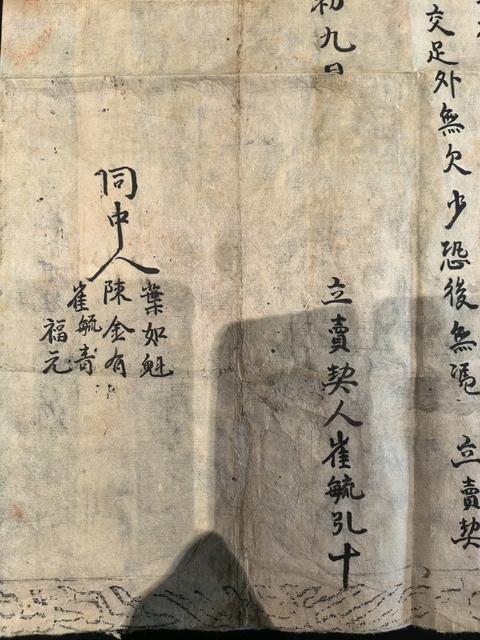 交足外無欠少恐後無憑 立賣契
初九日
立賣契人崔毓引十
同中人
葉如魁
陳金有
崔毓
福元